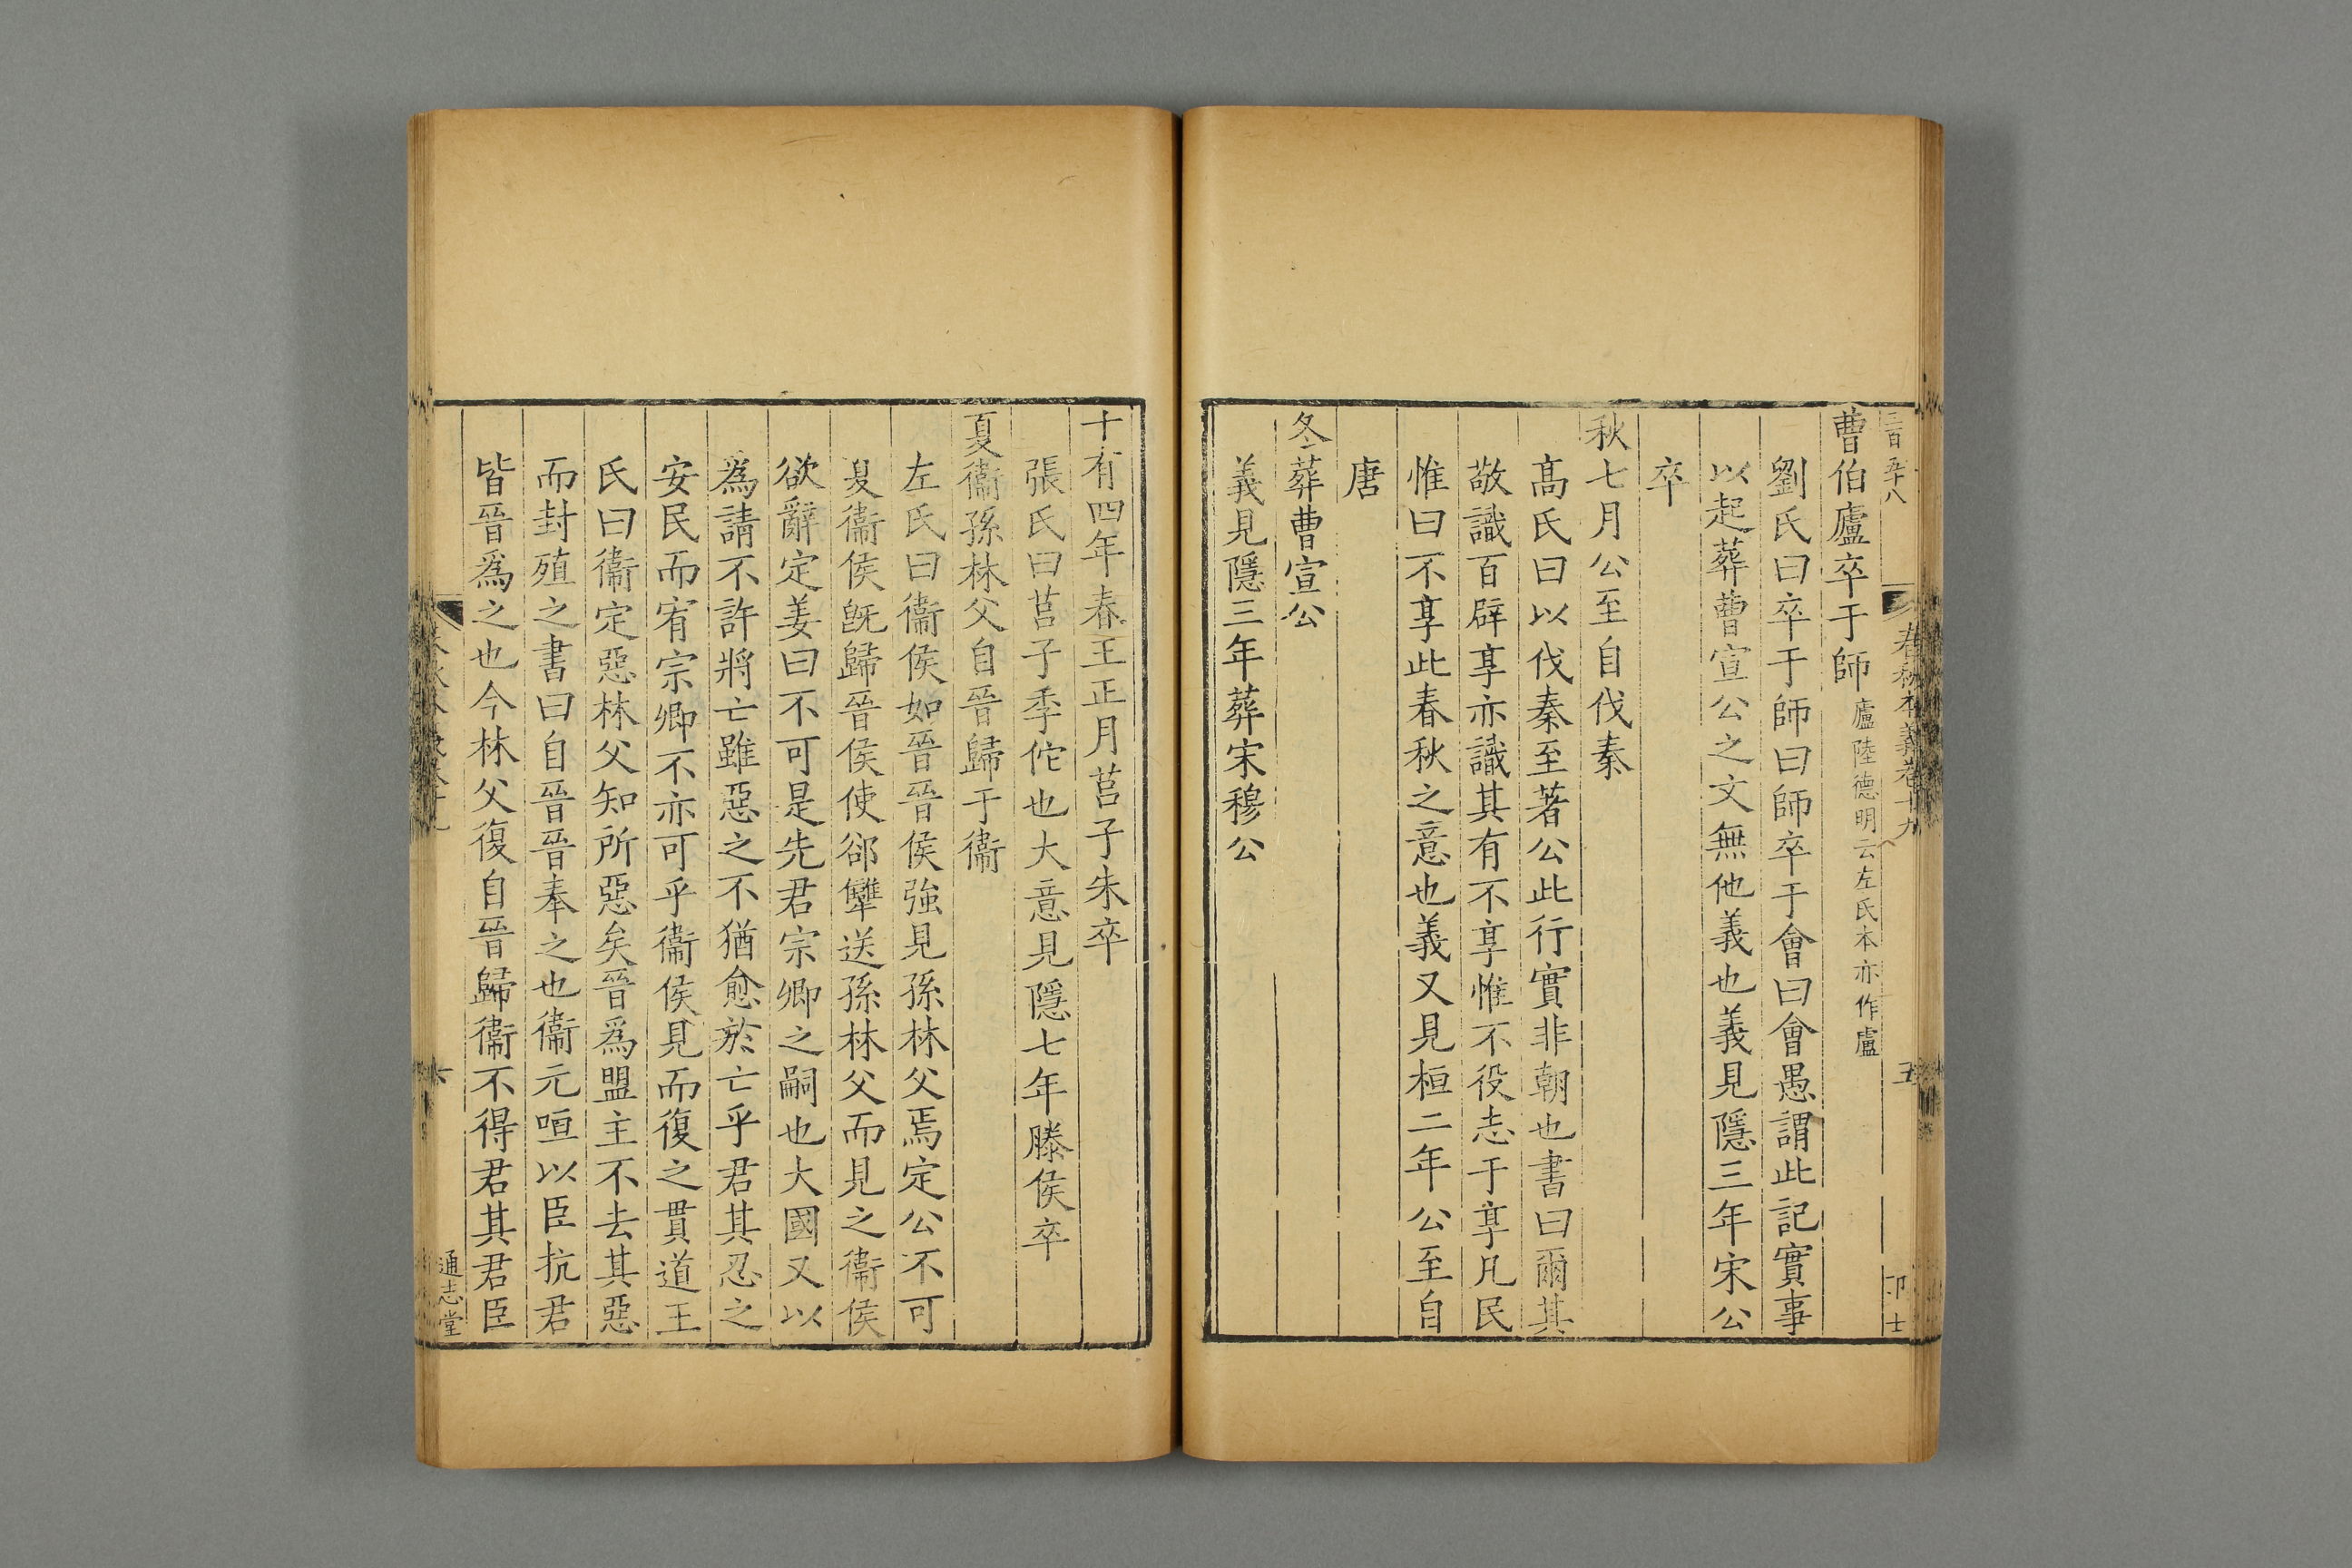 三百五十八
春秋本義卷十九
五
曹伯廬卒于師廬陸德明云左氏本亦作盧
劉氏曰卒于師曰師卒于會曰會愚謂此記實事
以起葬曹宣公之文無他義也義見隱三年宋公
卒
秋七月公至自伐秦
髙氏曰以伐秦至著公此行實非朝也書曰爾其
敬識百辟享亦識其有不享惟不役志于享凡民
惟曰不享此春秋之意也義又見桓二年公至自
唐
冬葬曹宣公
義見隱三年葬宋穆公
十有四年春王正月莒子朱卒
張氏曰莒子季佗也大意見隱七年滕侯卒
夏衞孫林父自晉歸于衞
左氏曰衞侯如晉晉侯強見孫林父焉定公不可
夏衞侯旣歸晉侯使郤犫送孫林父而見之衞侯
欲辭定姜曰不可是先君宗卿之嗣也大國又以
爲請不許將亡雖惡之不猶愈於亡乎君其忍之
安民而宥宗卿不亦可乎衞侯見而復之貫道王
氏曰衞定惡林父知所惡矣晉爲盟主不去其惡
而封殖之書曰自晉晉奉之也衞元咺以臣抗君
皆晉爲之也今林父復自晉歸衞不得君其君臣
六
通志堂